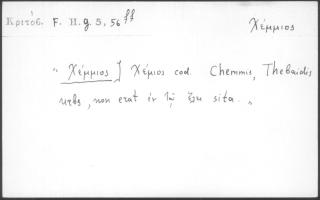 Κριτόβ. F. H. g. 5, 56 ff
Χέμμιος
" Χέμμιος ] Χέμιος cod. Chemmis, Thebaidis
urbs, non erat ἐν τῷ ἕλει sita. "